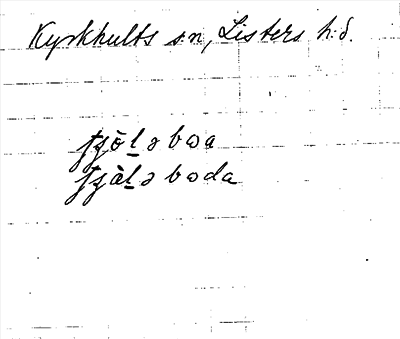 Kyrkhults sn, Listers h:d.
fjò̱lə bωa
fjàlə bωda